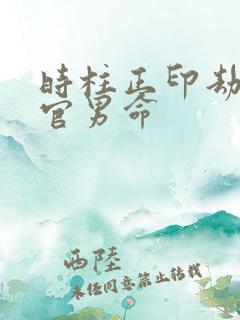 时柱正印劫
官男命
西陸
未经同意禁止转载